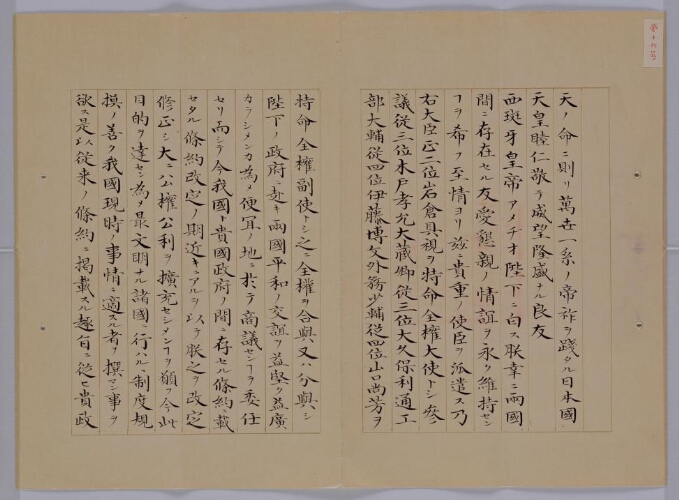 天ノ命ニ則リ萬世一系ノ帝祚ヲ踐タル日本國
天皇睦仁敬テ威望隆盛ナル良友
西班牙皇帝アメチオ陛下ニ白ス朕幸ニ兩國
間ニ存在セル友愛懇親ノ情誼ヲ永ク維持セン
ヿヲ希フ至情ヨリ茲ニ貴重ノ使臣ヲ派遣ス乃
右大臣正二位岩倉具視ヲ特命全權大使トシ參
議從三位木戸孝允大藏卿從三位大久保利通工
部大輔從四位伊藤博文外務少輔從四位山口尚芳ヲ
特命全權副使トシ之ニ全權ヲ合與又ハ分與シ
陛下ノ政府ニ赴キ兩國平和ノ交誼ヲ益堅ク益廣
カラシメンカ為メ便冝ノ地ニ於テ商議センヿヲ委任
セリ而シテ今我國ト貴國政府ノ間ニ存セル條約ニ載
セタル條約改定ノ期近キニアルヲ以テ朕之ヲ改定
修正シ大ニ公權公利ヲ擴充セシメンヿヲ願フ今此
目的ヲ達セン為メ最文明ナル諸國ニ行ハルヽ制度規
摸ノ善ク我國現時ノ事情ニ適スル者ヲ撰マン事ヲ
欲ス是以從来ノ條約ニ掲載スル趣旨ニ從ヒ貴政